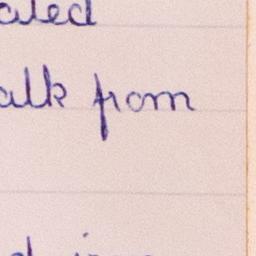 ated
alk from